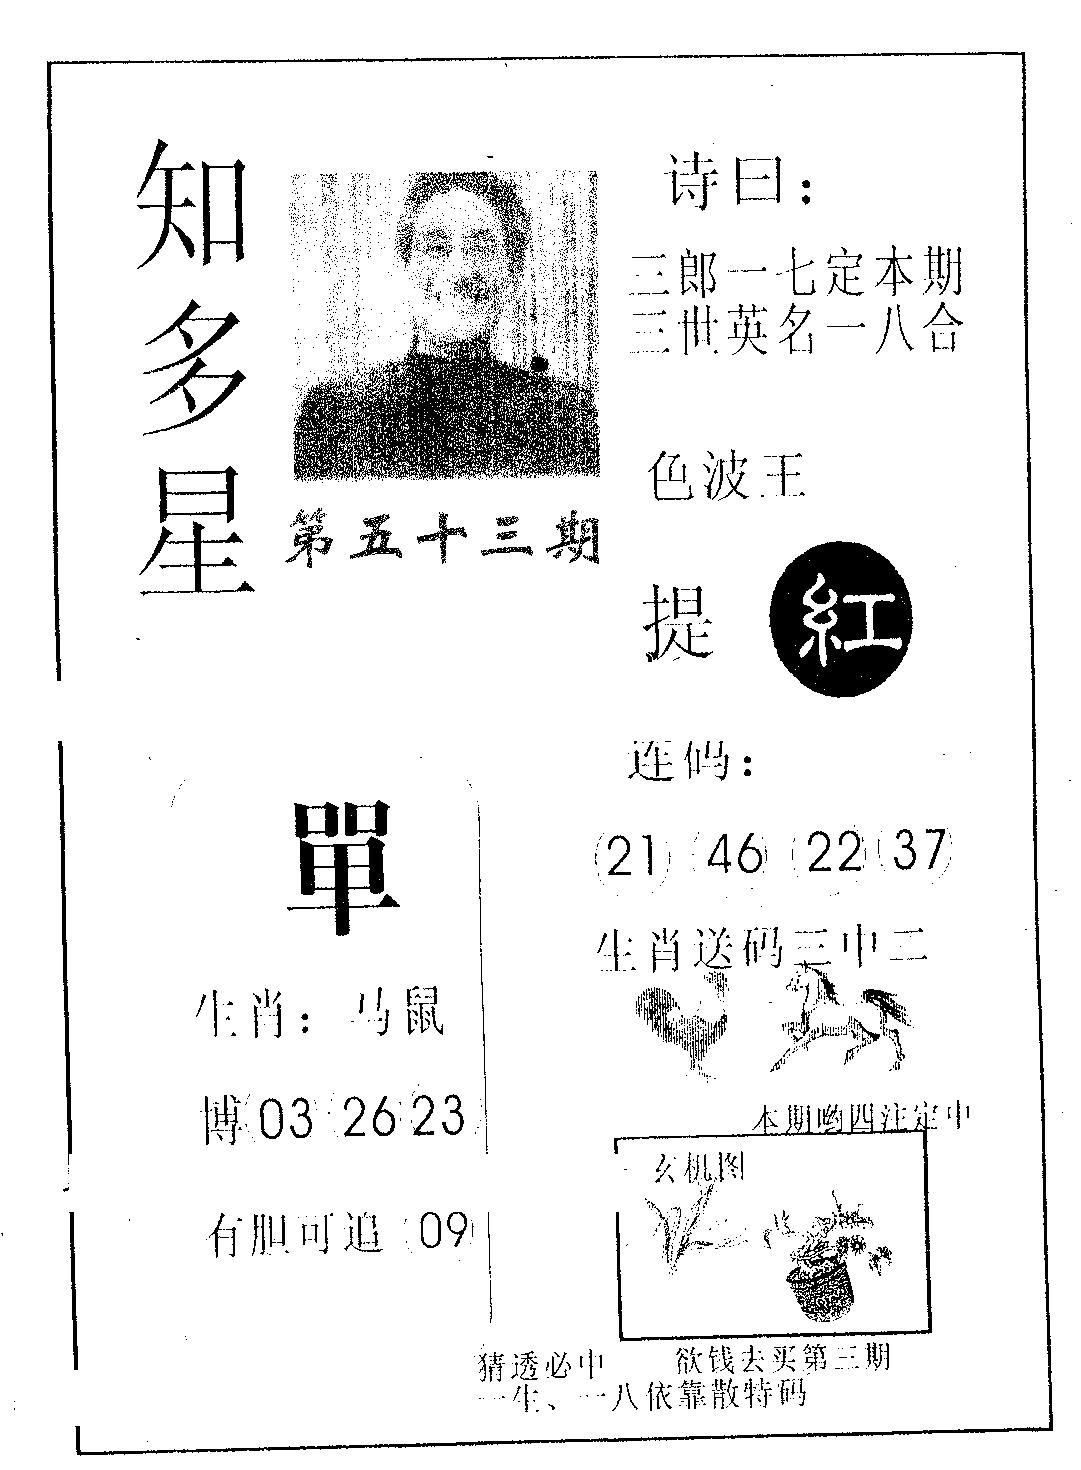 知多星
第五十三期
诗曰：
三郎一七定本期
三世英名一八合
色波王
提 紅
單
生肖：马鼠
博 03 26 23
有胆可追 09
连码：
21 46 22 37
生肖送码三中二
本期哟四注定中
玄机图
猜透必中 欲钱去买第三期
一生、一八依靠散特码